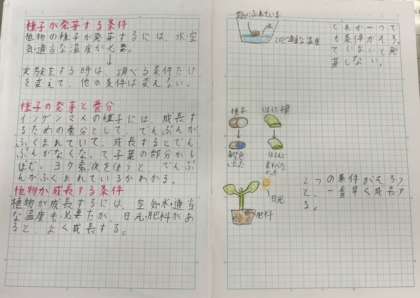 種子が発芽する条件
植物の種子が発芽するには、水、空
気、適当な温度が必要。
↓
実験をする時は、調べる条件だけ
を変えて、他の条件は変えない。
種子の発芽と養分
インゲンマメの種子には、成長す
るための養分として、でんぷんが
ふくまれていて、成長するとでんぷ
んがなくなって子葉の部分がし
ぼむ。ヨウ素液を使うと、でんぷ
んがふくまれているかわかる。
植物が成長する条件
植物が成長するには、空気、水、適当
な温度も必要だが、日光、肥料があ
ると、よく成長する。
適当な温度
どれか一つで
も条件がそろ
っていないと発
芽しない。
種子
日光
肥料
2つの条件がそろう
と、一番早く成長す
る。